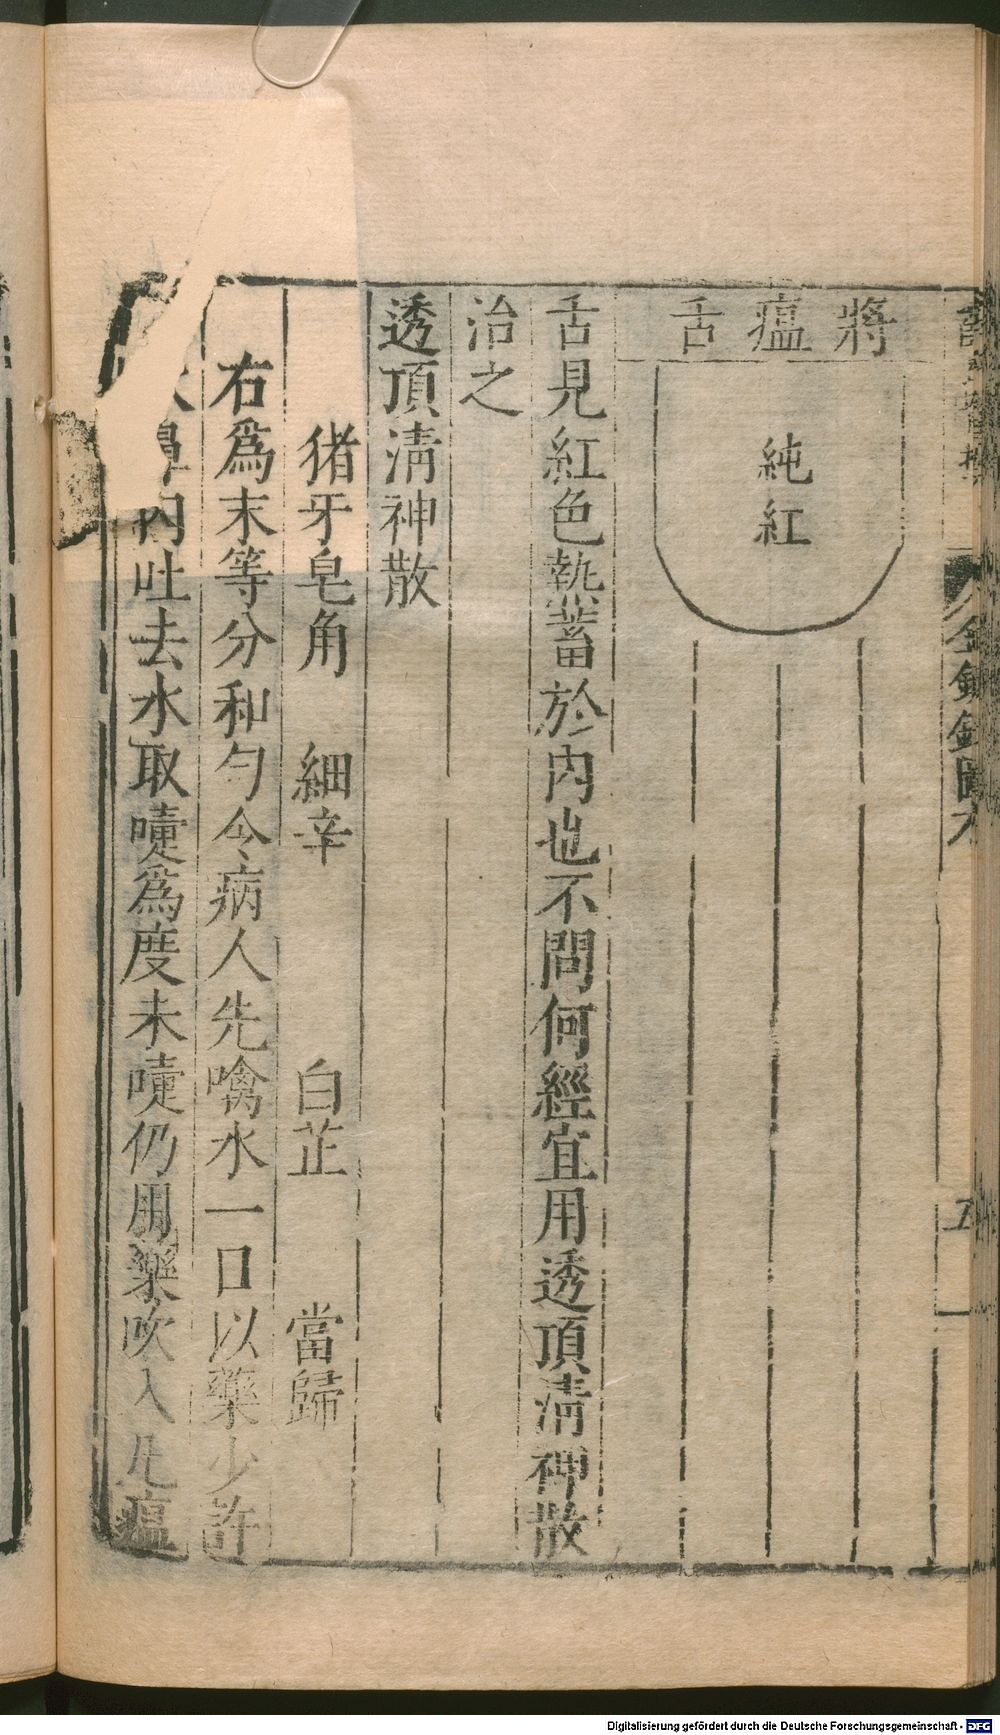 將瘟舌
純紅
舌見紅色熱蓄於內也不問何經宜用透頂清神散
治之
透頂清神散
猪牙皂角 細辛 白芷 當歸
右爲末等分和勻令病人先噙水一口以藥少許
鼻內吐去水取嚏爲度未嚏仍用藥吹入凡瘟
金鏡錄
五
Digitalisierung gefördert durch die Deutsche Forschungsgemeinschaft - DFG